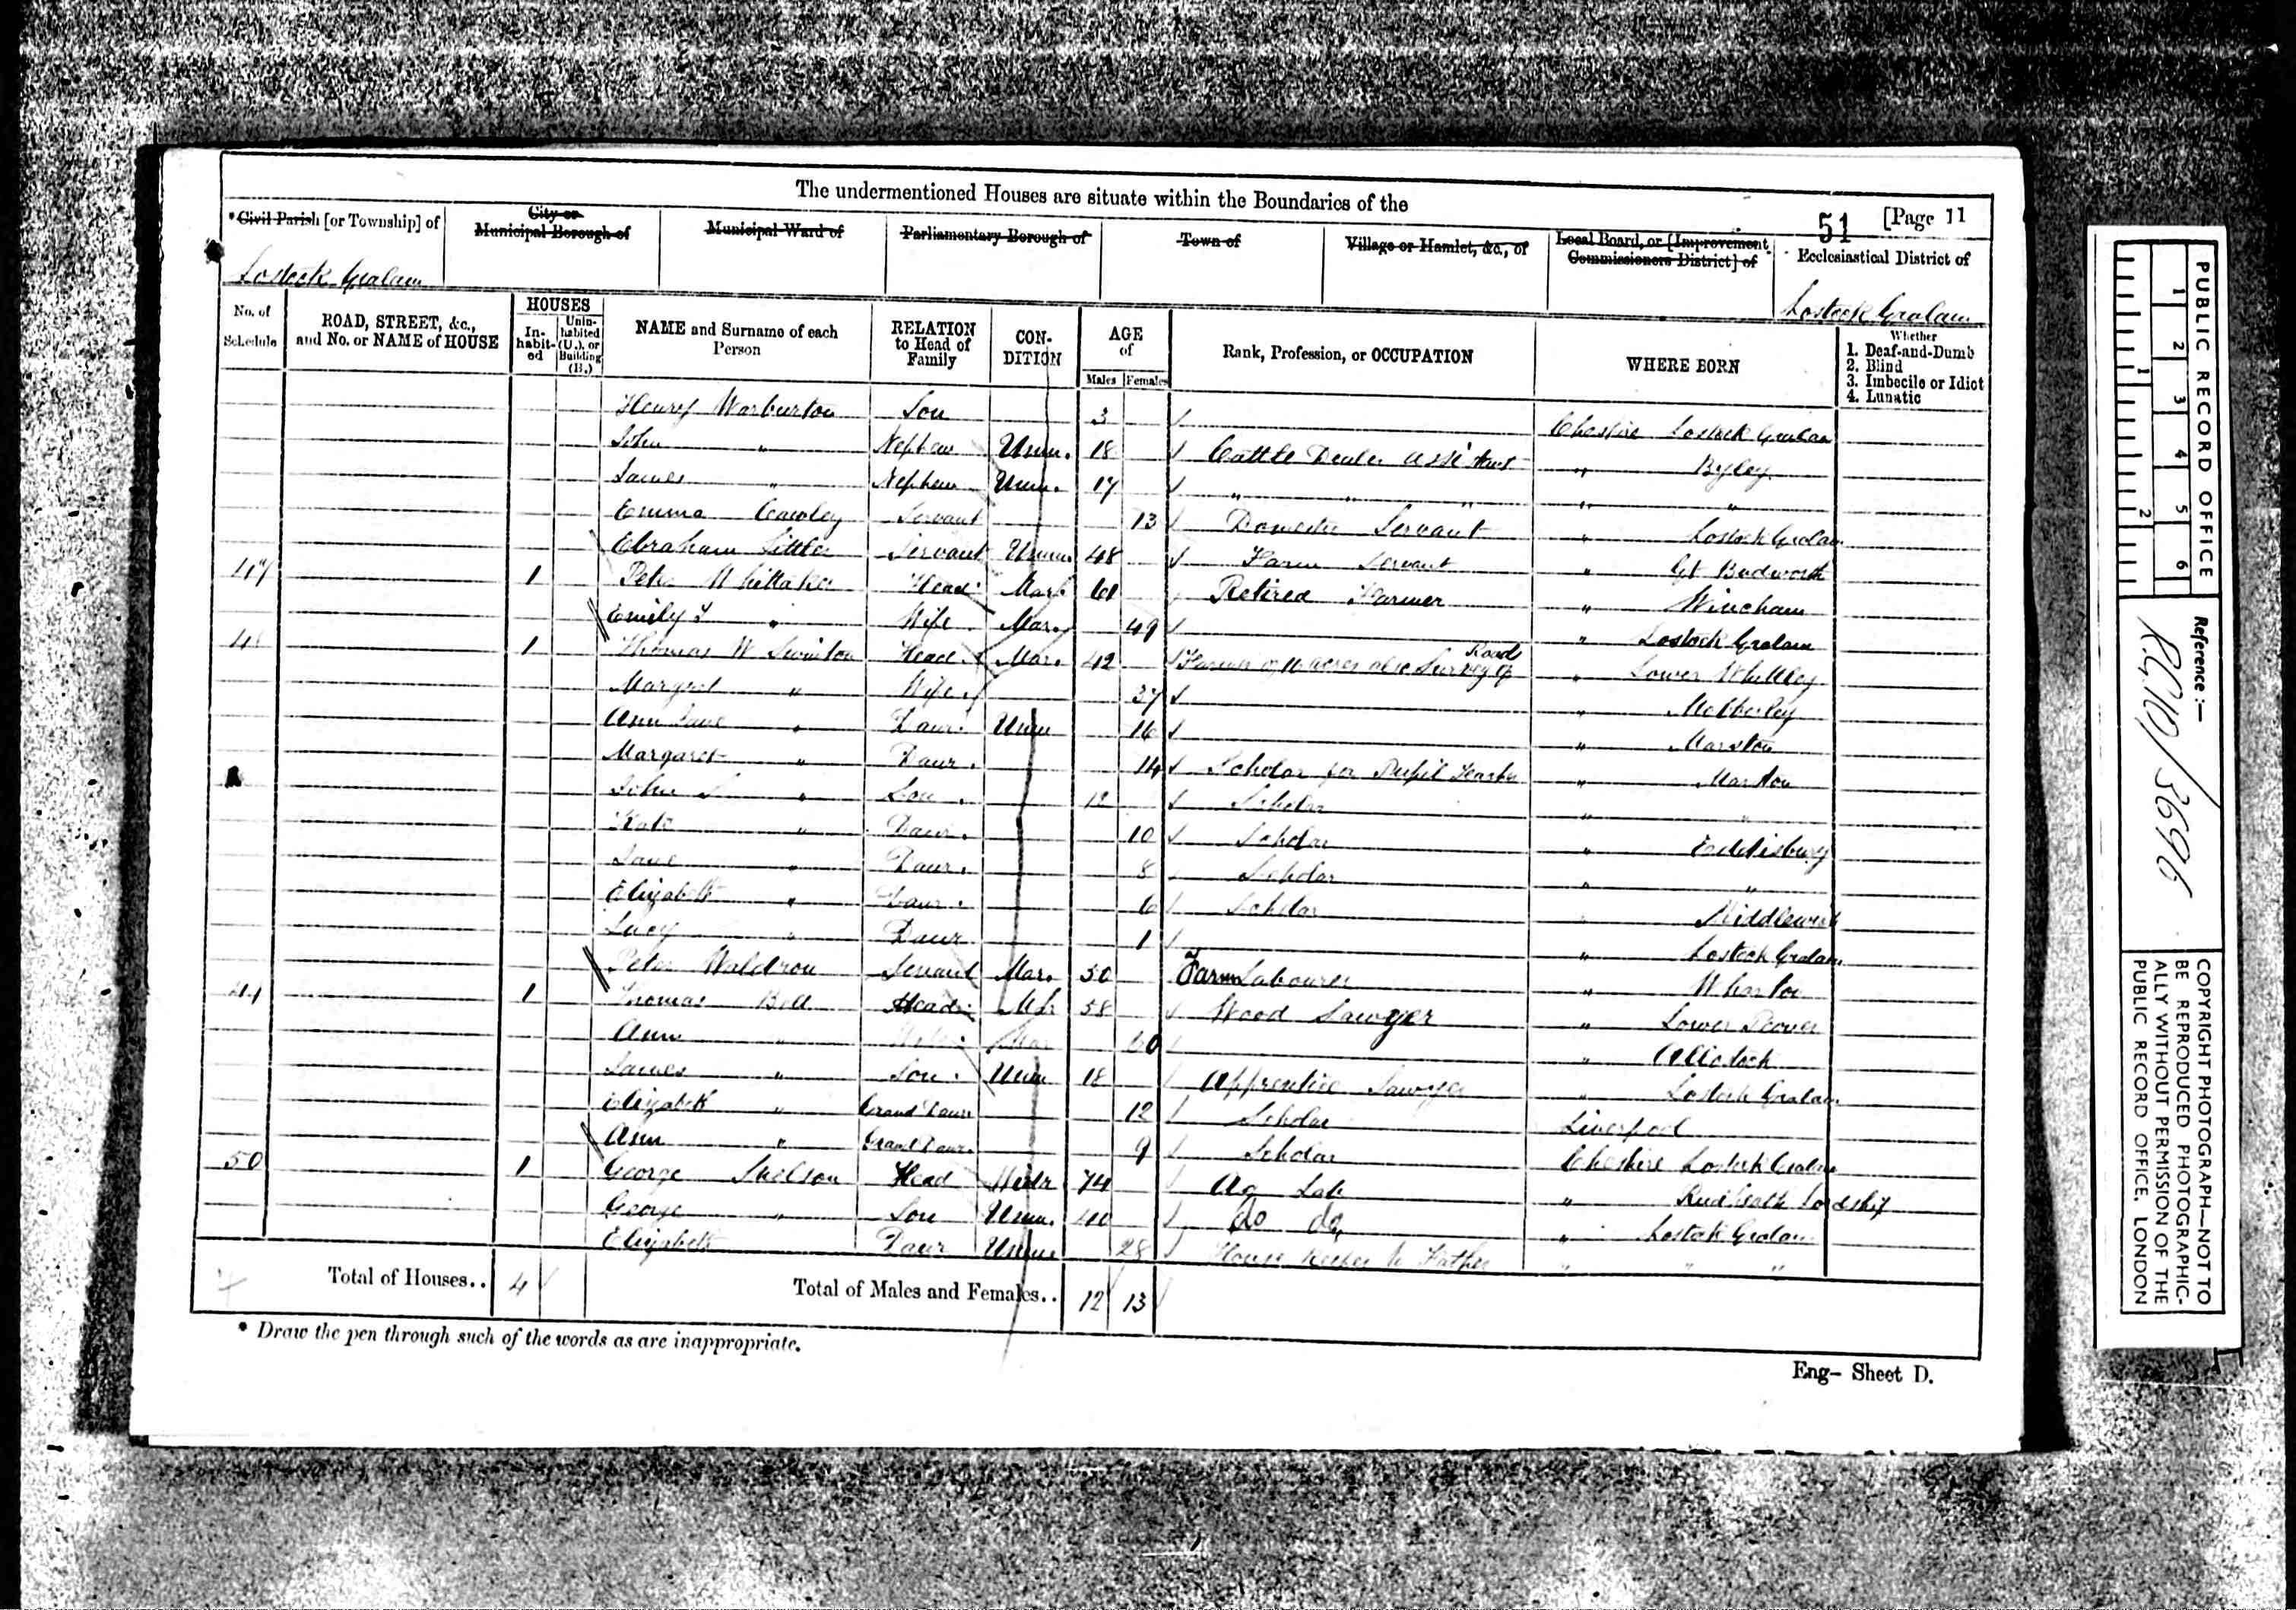 The undermentioned Houses are situate within the Boundaries of the
51 [Page 11
* Civil Parish [or Township] of
City or Municipal Borough of
Municipal Ward of
Parliamentary Borough of
Town of
Village or Hamlet, &c., of
Local Board, or [Improvement Commissioners District] of
Ecclesiastical District of
Lostock Gralam
Lostock Gralam
No. of Schedule
ROAD, STREET, &c., and No. or NAME of HOUSE
HOUSES
In-habit-ed
Unin-habited (U.), or Building (B.)
NAME and Surname of each Person
RELATION to Head of Family
CON-DITION
AGE of
Males Females
Rank, Profession, or OCCUPATION
WHERE BORN
Whether
1. Deaf-and-Dumb
2. Blind
3. Imbecile or Idiot
4. Lunatic
Henry Warburton Son 3 Cheshire Lostock Gralam
John " Nephew Unm. 18 Cattle Dealer assistant " Byley
James " Nephew Unm. 17 " " " " "
Emma Cawley Servant 13 Domestic Servant " Lostock Gralam
Ebraham Little Servant Unm. 48 Farm Servant " Gt Budworth
47 1 Peter Whittaker Head Mar. 61 Retired Farmer " Wincham
Emily " Wife Mar. 49 " Lostock Gralam
48 1 Thomas W Swinton Head Mar. 42 Farmer of acres also Survey of Roads " Lower Whitley
Margret " Wife 37 " Mobberley
Ann Jane " Daur. Unm 16 " Marston
Margaret " Daur. 14 Scholar for Pupil Teacher " Marston
John S " Son. 12 Scholar " "
Kate " Daur. 10 Scholar " Eddisbury
Jane " Daur. 8 Scholar " "
Elizabeth " Daur. 6 Scholar " Middlewich
Lucy " Daur 1 " Lostock Gralam
Peter Waldron Servant Mar. 50 Farm Labourer " Wharton
1 Thomas Bell Head Mar 58 Wood Sawyer " Lower Peover
Ann " Wife Mar 60 " Allostock
James " Son. Unm 18 Apprentice Sawyer " Lostock Gralam
Elizabeth " Grand Daur 12 Scholar Liverpool
Ann " Grand Daur. 9 Scholar Cheshire Lostock Gralam
50 1 George Skelson Head Widr 74 Ag Lab " Rudheath Lordship
George " Son Unm. 40 do do " Lostock Gralam
Elizabeth Daur Unm. 28 House Keeper to Father " " "
Total of Houses.. 4 Total of Males and Females.. 12 13
* Draw the pen through such of the words as are inappropriate.
Eng- Sheet D.
PUBLIC RECORD OFFICE
1 2 3 4 5 6
1 2
Reference:—
RG 10/3696
COPYRIGHT PHOTOGRAPH—NOT TO BE REPRODUCED PHOTOGRAPHIC-ALLY WITHOUT PERMISSION OF THE PUBLIC RECORD OFFICE, LONDON